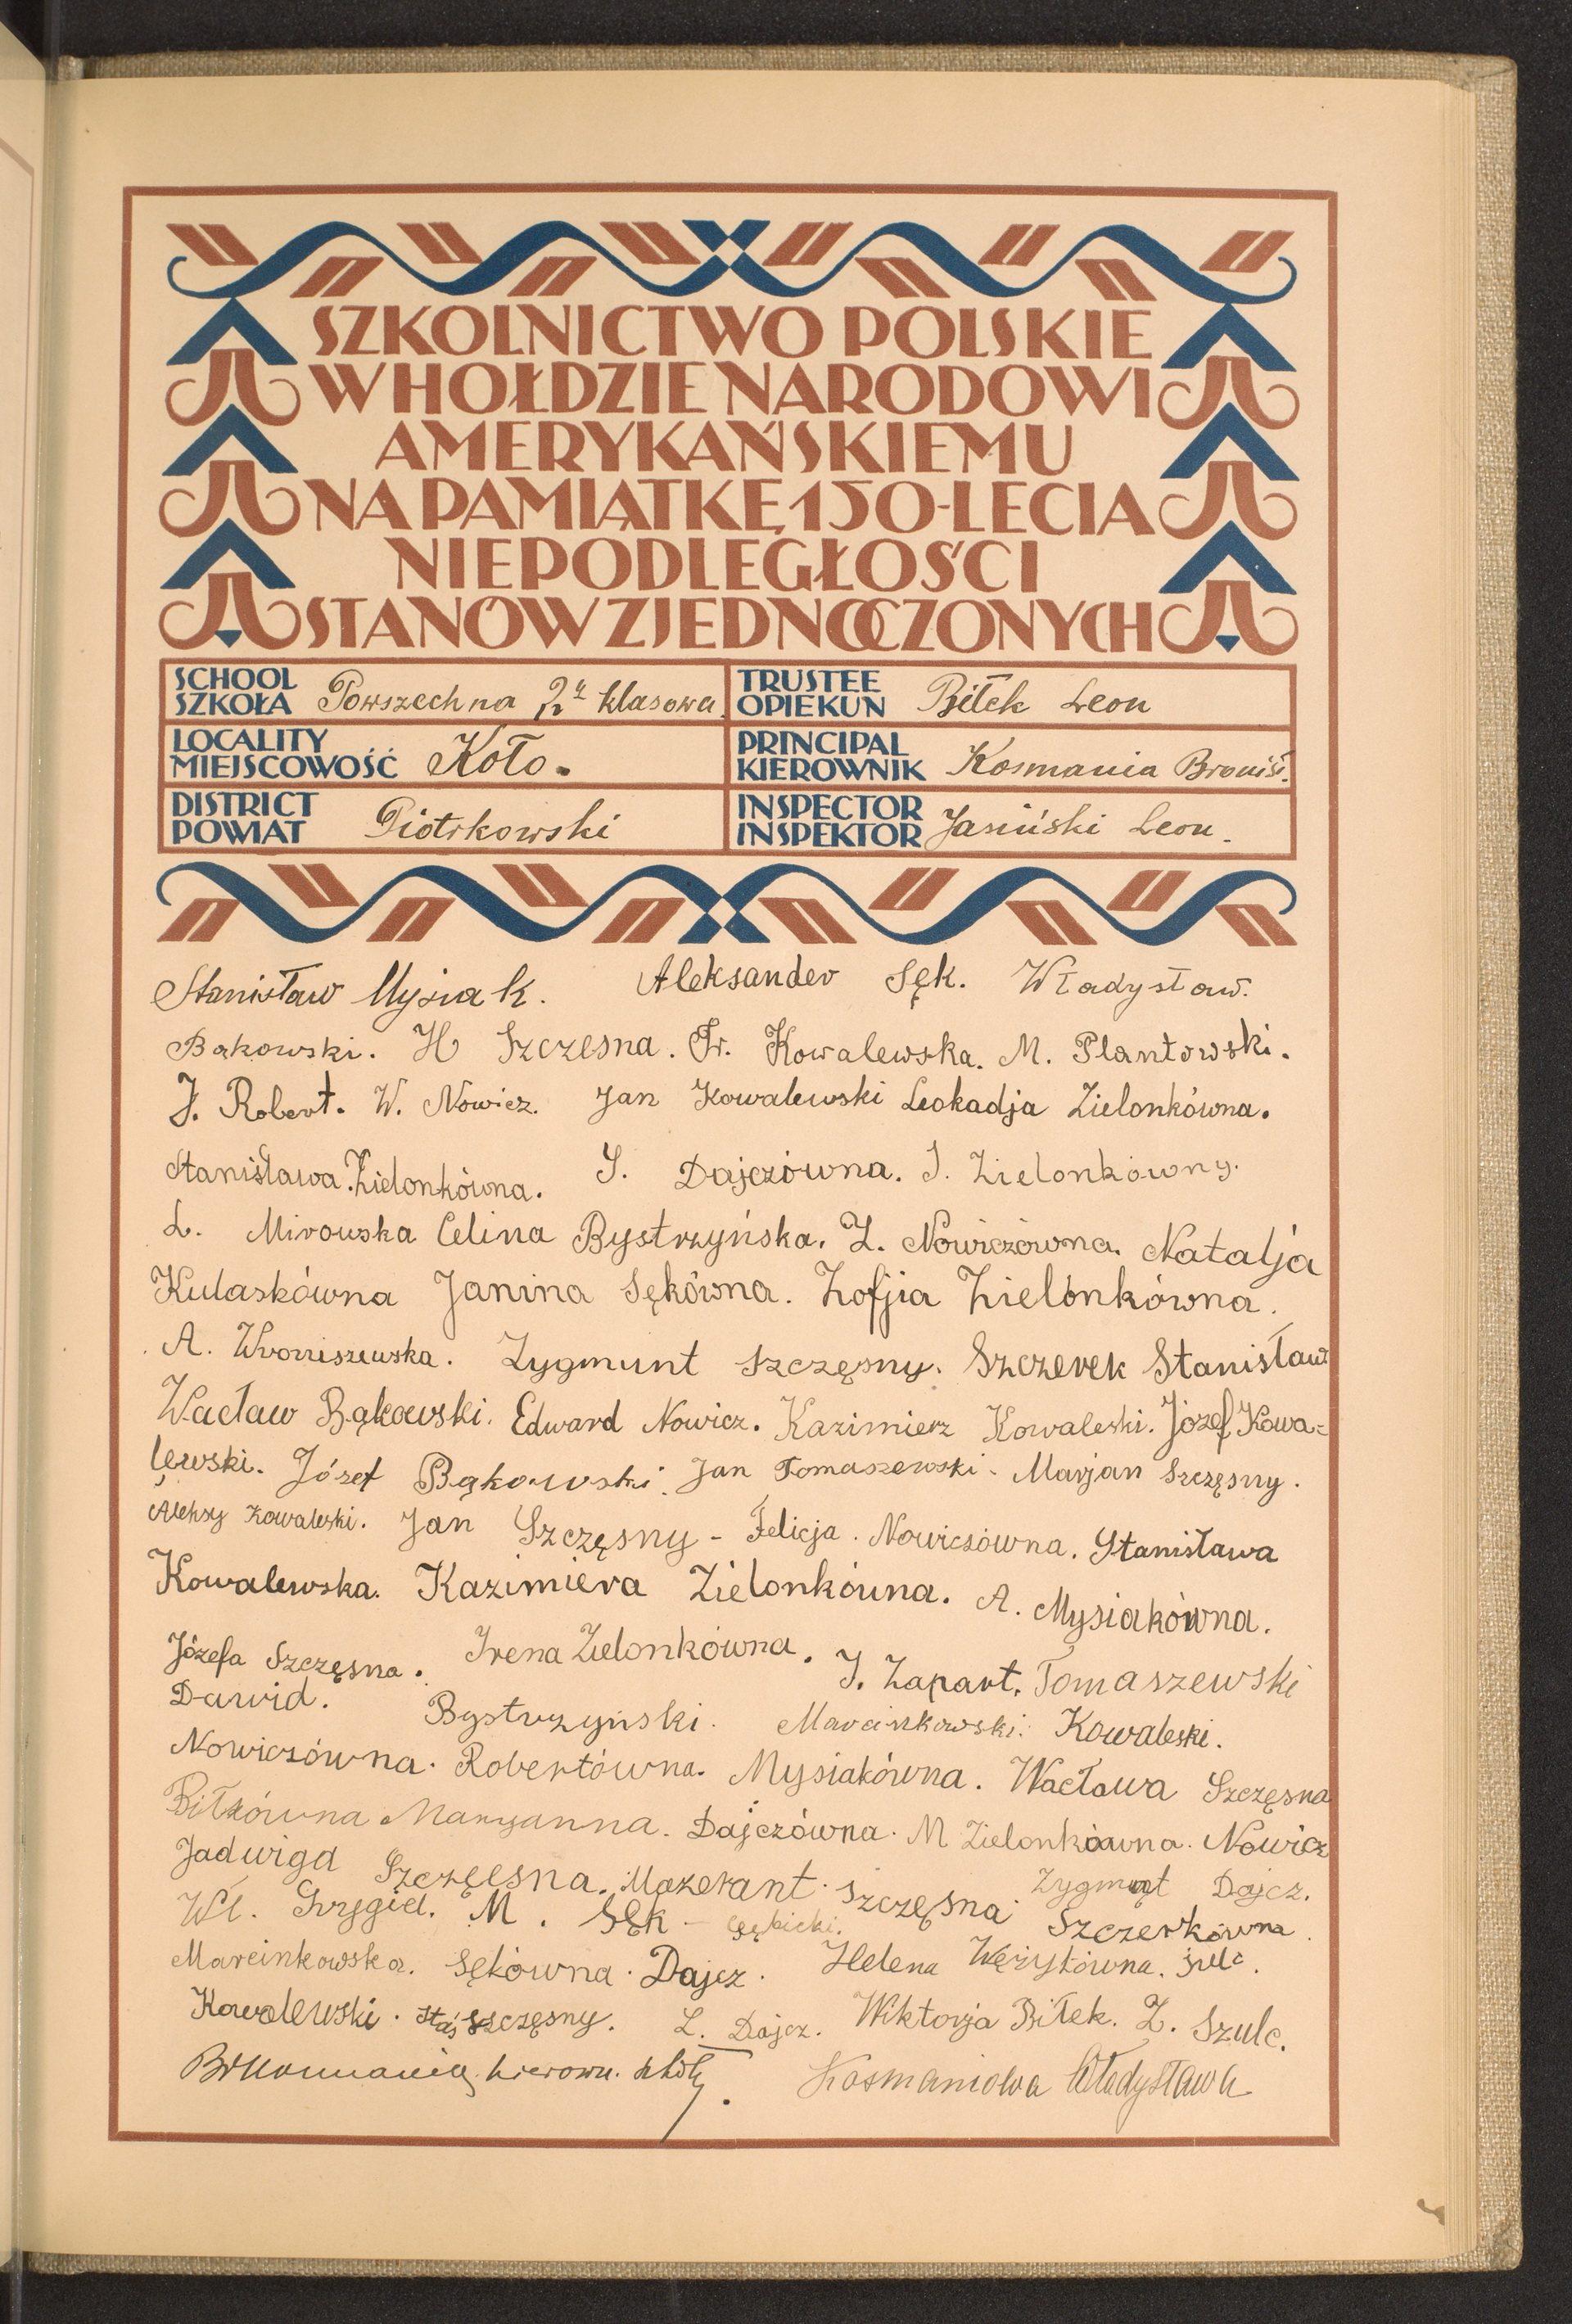 SZKOLNICTWO POLSKIE
W HOŁDZIE NARODOWI
AMERYKAŃSKIEMU
NA PAMIĄTKĘ 150-LECIA
NIEPODLEGŁOŚCI
STANÓW ZJEDNOCZONYCH
SCHOOL
SZKOŁA Powszechna 2 klasowa
TRUSTEE
OPIEKUN Biłek Leon
LOCALITY
MIEJSCOWOŚĆ Koło.
PRINCIPAL
KIEROWNIK Kosmania Bronisł.
DISTRICT
POWIAT Piotrkowski
INSPECTOR
INSPEKTOR Jasiński Leon.
Stanisław Mysiak. Aleksander Sęk. Władysław.
Bąkowski. H Szczesna. Fr. Kowalewska. M. Plantowski.
J. Robert. W. Nowicz. Jan Kowalewski Leokadja Zielonkówna.
Stanisława Zielonkówna. S. Dajczówna. J. Zielonkówny.
L. Mirowska Celina Bystrzyńska. Z. Nowiczówna. Natalja
Kulaskówna Janina Sękówna. Zofjia Zielonkówna.
A. Zygmunt Szczęsny. Szczerek Stanisław
Wacław Bąkowski. Edward Nowicz. Kazimierz Kowaleski. Józef Kowa=
lewski. Józef Bąkowski. Jan Tomaszewski - Marjan Szczęsny.
Aleksy Kowaleski. Jan Szczęsny - Felicja. Nowiczówna. Stanisława
Kowalewska. Kazimiera Zielonkówna. A. Mysiakówna.
Józefa Szczęsna. Irena Zielonkówna. J. Zapart. Tomaszewski
Dawid. Bystrzyński. Marcinkowski. Kowaleski.
Nowiczówna. Robertówna. Mysiakówna. Wacława Szczęsna
Biłkówna Maryanna. Dajczówna. M Zielonkówna. Nowicz
Jadwiga Szczęsna. Mazerant. Szczęsna Zygmut Dajcz.
Wł. Grygiel. M. Sęk - Szczerkówna.
Marcinkowska. Sękówna. Dajcz. Helena Wężykówna. Szulc.
Kowalewski. Staś Szczęsny. L. Dajcz. Wiktorja Biłek. Z. Szulc.
Br Kosmania kierown. szkoły. Kosmaniowa Władysława